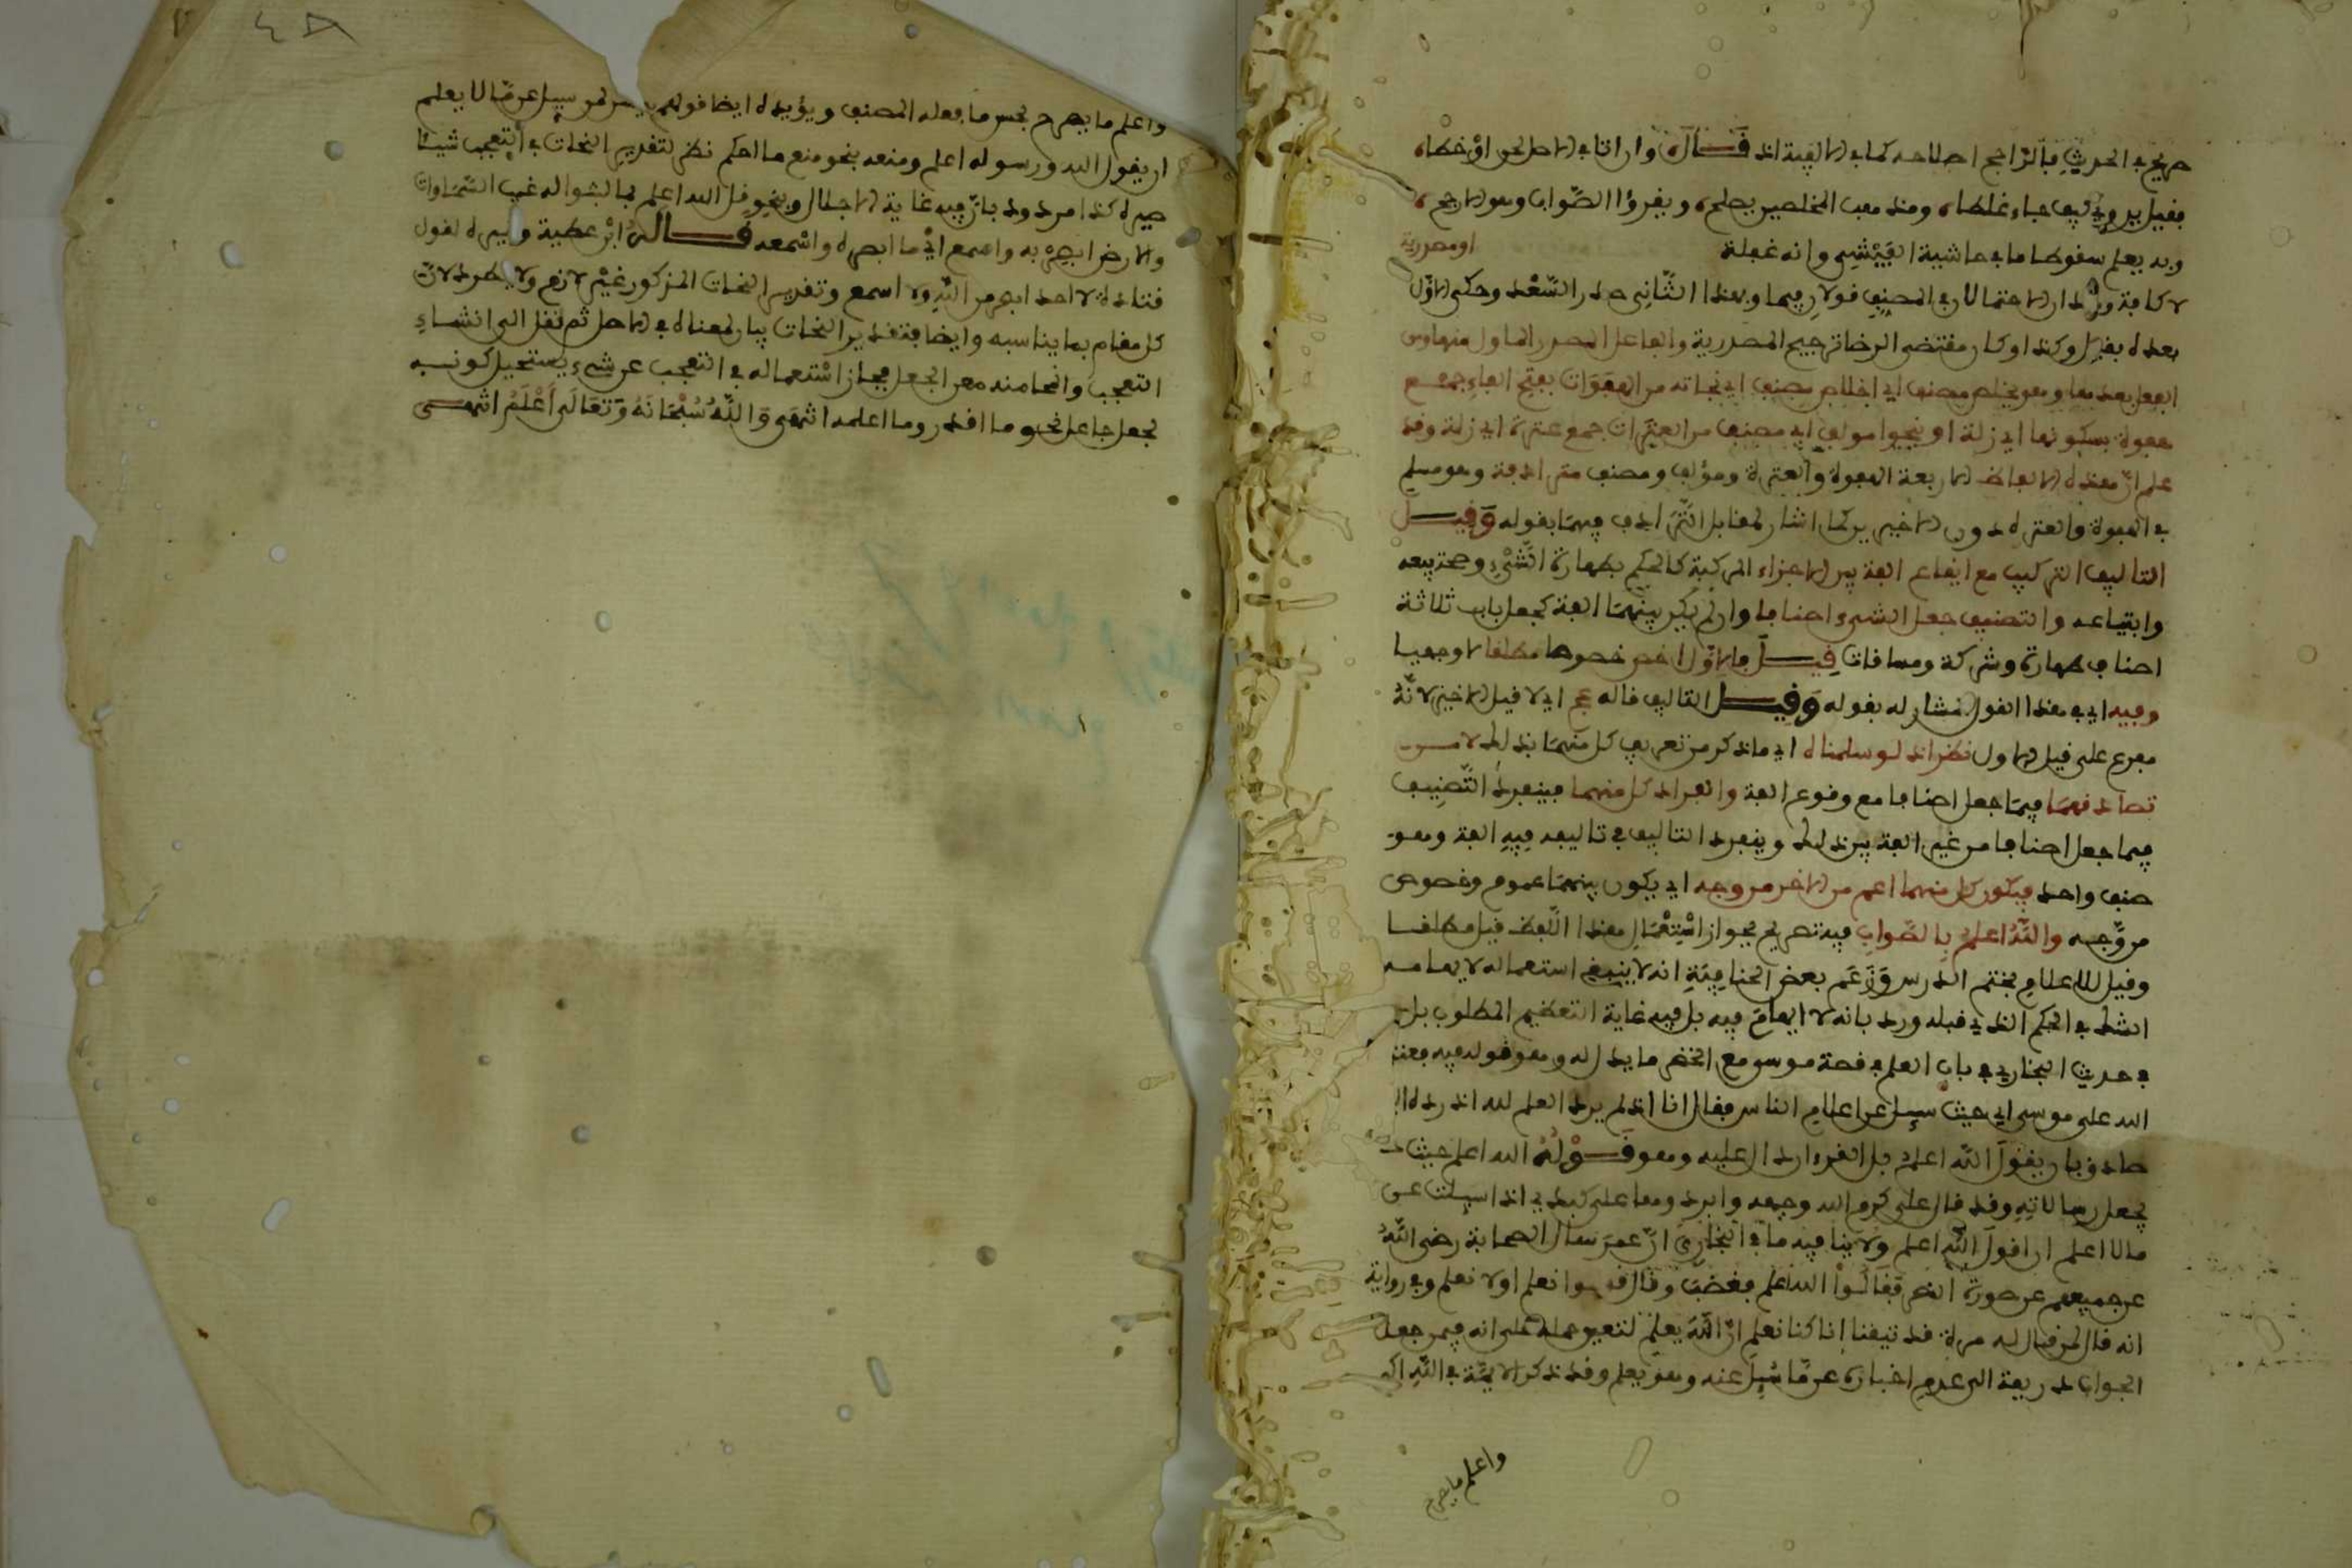 صريح في الحديث فالراجح اصلاحه كما في الالفية اذ قال وان اتى في الاصل لحن او خطا
فقيل يروى كيف جاء غلطا ومذهب المخلصين يصلح ويقرؤا الصواب وهو الارجح
وبه يعلم سقوط ما في حاشية الفيشي وانه غفلة او مصدرية
لا كافة ويرد ان الاحتمالان في المصنف قولان فيما وبهذا الثاني صدر السعد وحكى الاول
بعده بقيل وكذا وكان مقتضى الرضا ترجيح المصدرية والفاعل المصدر الماول منها ومن
الفعل بعدها وهو يخلص مصنف اي اخلاص مصنف اي نجاته من الهفوات بفتح الفاء جمع
هفوة بسكونها اي زلة او ينجوا مولف اي مصنف من العثرات جمع عثرة اي زلة وقد
علم ان هذه الالفاظ الاربعة الهفوة والعثرة ومؤلف ومصنف مترادفة وهو مسلم
في الهفوة والعثرة دون الاخيرين كما اشار لمقابل الترادف فيهما بقوله وقيل
التاليف التركيب مع ايقاع الفة بين الاجزاء المركبة كالحكم بطهارة الشيء وصحة بيعه
وابتياعه والتصنيف جعل الشيء اصنافا وان لم يكن بينهما الفة كجعل باب ثلاثة
اصناف طهارة وشركة ومسافات قيل فالاول اخص خصوصا مطلقا لا وجهيا
وفيه اي في هذا القول المشار له بقوله وقيل التاليف قاله عج اي لا قيل الاخير لانه
مفرع على قيل الاول نظر اذ لو سلمناه اي ما ذكر من تعريف كل منهما بذلك لا من
تصادقهما فيما جعل اصنافا مع وقوع الفة وانفراد كل منهما فينفرد التصنيف
فيما جعل اصنافا من غير الفة بين ذلك وينفرد التاليف في تاليفه فيه الفة وهو
صنف واحد فيكون كل منهما اعم من الاخر من وجه اي يكون بينهما عموم وخصوص
من وجه والله اعلم بالصواب فيه تصريح بجواز استعمال هذا اللفظ قيل مطلقا
وقيل للاعلام بختم الدرس وزعم بعض الحنافية انه لا ينبغي استعماله لايهامه
الشك في الحكم الذي قبله ورد بانه لا ايهام فيه بل فيه غاية التعظيم المطلوب بل
في حديث البخاري في باب العلم في قصة موسى مع الخضر ما يدل له وهو قوله فيه فعتب
الله على موسى اي حيث سيل عن اعلم الناس فقال انا اذ لم يرد العلم لله اذ رده
صادق بان يقول الله اعلم بل القرءان دال عليه وهو قوله الله اعلم حيث
يجعل رسالاته وقد قال علي كرم الله وجهه وابردها على كبدي اذا سيلت عن
ما لا اعلم ان اقول الله اعلم ولا ينافيه ما في البخاري ان عمر سال الصحابة رضي الله
عن جميعهم عن صورة النصر فقالوا الله اعلم فغضب وقال قولوا نعلم او لا نعلم وفي رواية
انه قال لمن قال له مرة قد تيقنا انا كنا نعلم ان الله يعلم لتعين حمله على انه فيمن جعل
الجواب ذريعة الى عدم اخباره عن ما سيل عنه وهو يعلم وقد ذكر الايمة في الله اكـ
واعلم ما يصرح
٤٨
واعلم ما يصرح بحسن ما فعله المصنف ويؤيده ايضا قولهم يسن لمن سيل عن ما لا يعلم
ان يقول الله ورسوله اعلم ومنعه بنحو منع ما احكم نظر لتقدير النحات في التعجب شيئا
صيره كذا مردود بان فيه غاية الاجلال وبنحو قل الله اعلم بما لبثوا له غيب السماوات
والارض ابصر به واسمع اي ما ابصره واسمعه قال ابن عطية وغيره لقول
قتادة لا احد ابصر من الله ولا اسمع وتقدير النحات المذكور غير لازم ولا مطرد لان
كل مقام بما يناسبه وايضا فتقدير النحات بيان لمعناه في الاصل ثم نقل الى انشاء
التعجب وانحا منه معنى الجعل فجاز استعماله في التعجب عن شيء يستحيل كونه
بجعل جاعل نحو ما اقدره وما اعلمه انتهى والله سبحانه وتعالى اعلم انتهى